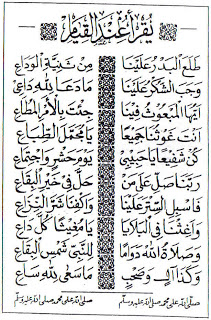 يُقْرَأُ عِنْدَ الْقِيَامِ
طَلَعَ الْبَدْرُ عَلَيْنَا مِنْ ثَنِيَّةِ الْوَدَاعِ
وَجَبَ الشُّكْرُ عَلَيْنَا مَا دَعَا لِلّٰهِ دَاعِ
اَيُّهَا الْمَبْعُوثُ فِينَا جِئْتَ بِالْاَمْرِ الْمُطَاعِ
اَنْتَ غَوْثُنَا جَمِيعًا يَا مُجَمَّلَ الطِّبَاعِ
كُنْ شَفِيعًا يَا حَبِيبِي يَوْمَ حَشْرٍ وَاجْتِمَاعِ
رَبَّنَا صَلِّ عَلَى مَنْ حَلَّ فِي خَيْرِ الْبِقَاعِ
فَاسْبِلِ السَّتْرَ عَلَيْنَا وَاكْفِنَا شَرَّ النِّزَاعِ
وَاَغِثْنَا فِي الْبَلَايَا يَا مُغِيثًا كُلَّ دَاعِ
وَصَلَاةُ اللهِ دَوَامًا لِلنَّبِي شَمْسِ الْبِقَاعِ
وَكَذَا اٰلٍ وَصَحْبٍ مَا سَعَى لِلّٰهِ سَاعِ
صلى الله على محمد صلى الله عليه وسلم صلى الله على محمد صلى الله عليه وسلم